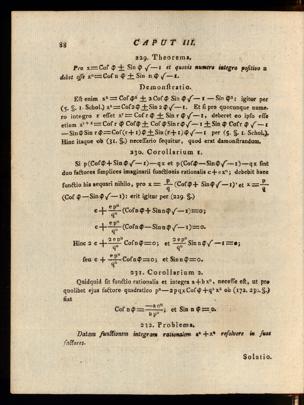 88 CAPUT III.
229. Theorema.
Pro x=Cosφ ± Sin φ √−1 et quovis numero integro positivo n
debet esse xⁿ=Cos n φ ± Sin n φ √−1.
Demonstratio.
Est enim x²=Cos φ² ± 2 Cos φ Sin φ √−1 − Sin φ²: igitur per
(5. §. 1. Schol.) x²=Cos2φ ± Sin 2 φ √−1. Et si pro quocunque nume-
ro integro r esset xʳ=Cos r φ ± Sin r φ √−1, deberet eo ipso esse
etiam xʳ⁺¹=Cos r φ Cos φ ± Cos φ Sin r φ √−1 ± Sin φ Cos r φ √−1
−Sin φ Sin r φ=Cos(r+1) φ ± Sin (r+1) φ √−1 per (5. §. 1. Schol.).
Hinc itaque ob (31. §.) necessario sequitur, quod erat demonstrandum.
230. Corollarium 1.
Si p(Cosφ+Sinφ√−1)−qx et p(Cosφ−Sinφ√−1)−qx sint
duo factores simplices imaginarii functionis rationalis c+exⁿ; debebit haec
functio his aequari nihilo, pro x = p/q (Cosφ + Sinφ√−1) et x = p/q
(Cosφ−Sinφ√−1): erit igitur per (229. §.)
c + epⁿ/qⁿ (Cosnφ+Sinnφ√−1)=0;
c + epⁿ/qⁿ (Cosnφ−Sinnφ√−1)=0.
Hinc 2 c + 2epⁿ/qⁿ Cosnφ=0; et 2epⁿ/qⁿ Sinnφ√−1=0;
seu c + epⁿ/qⁿ Cosnφ=0; et Sinnφ=0.
231. Corollarium 2.
Quidquid sit functio rationalis et integra a+bxⁿ, necesse est, ut pro
quolibet ejus factore quadratico p²−2pqxCosφ+q²x² ob (172. 230. §.)
fiat
Cos nφ = −aqⁿ/bpⁿ; et Sin n φ=0.
232. Problema.
Datam functionem integram rationalem aⁿ+xⁿ resolvere in suos
factores.
Solutio.